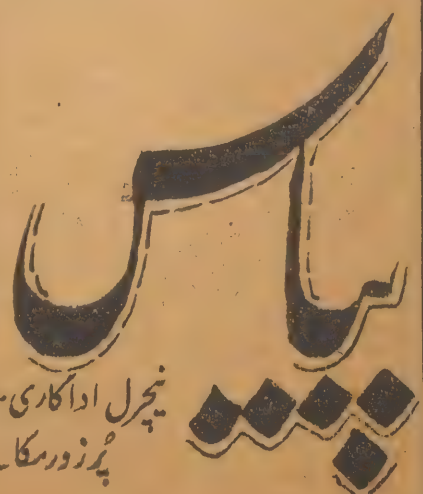 پیاس
نیچرل اداکاری۔
پُرزور مکا